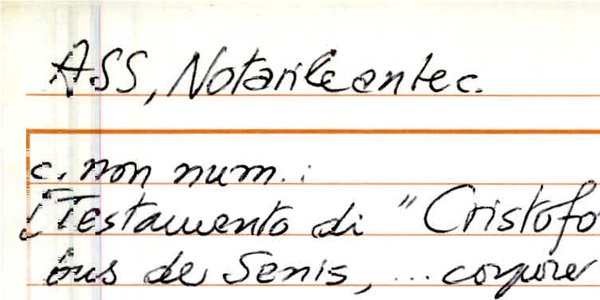 ASS, Notarile antec.
c. non num.:
[Testamento di "Cristofo
bus de Senis, ... corpore